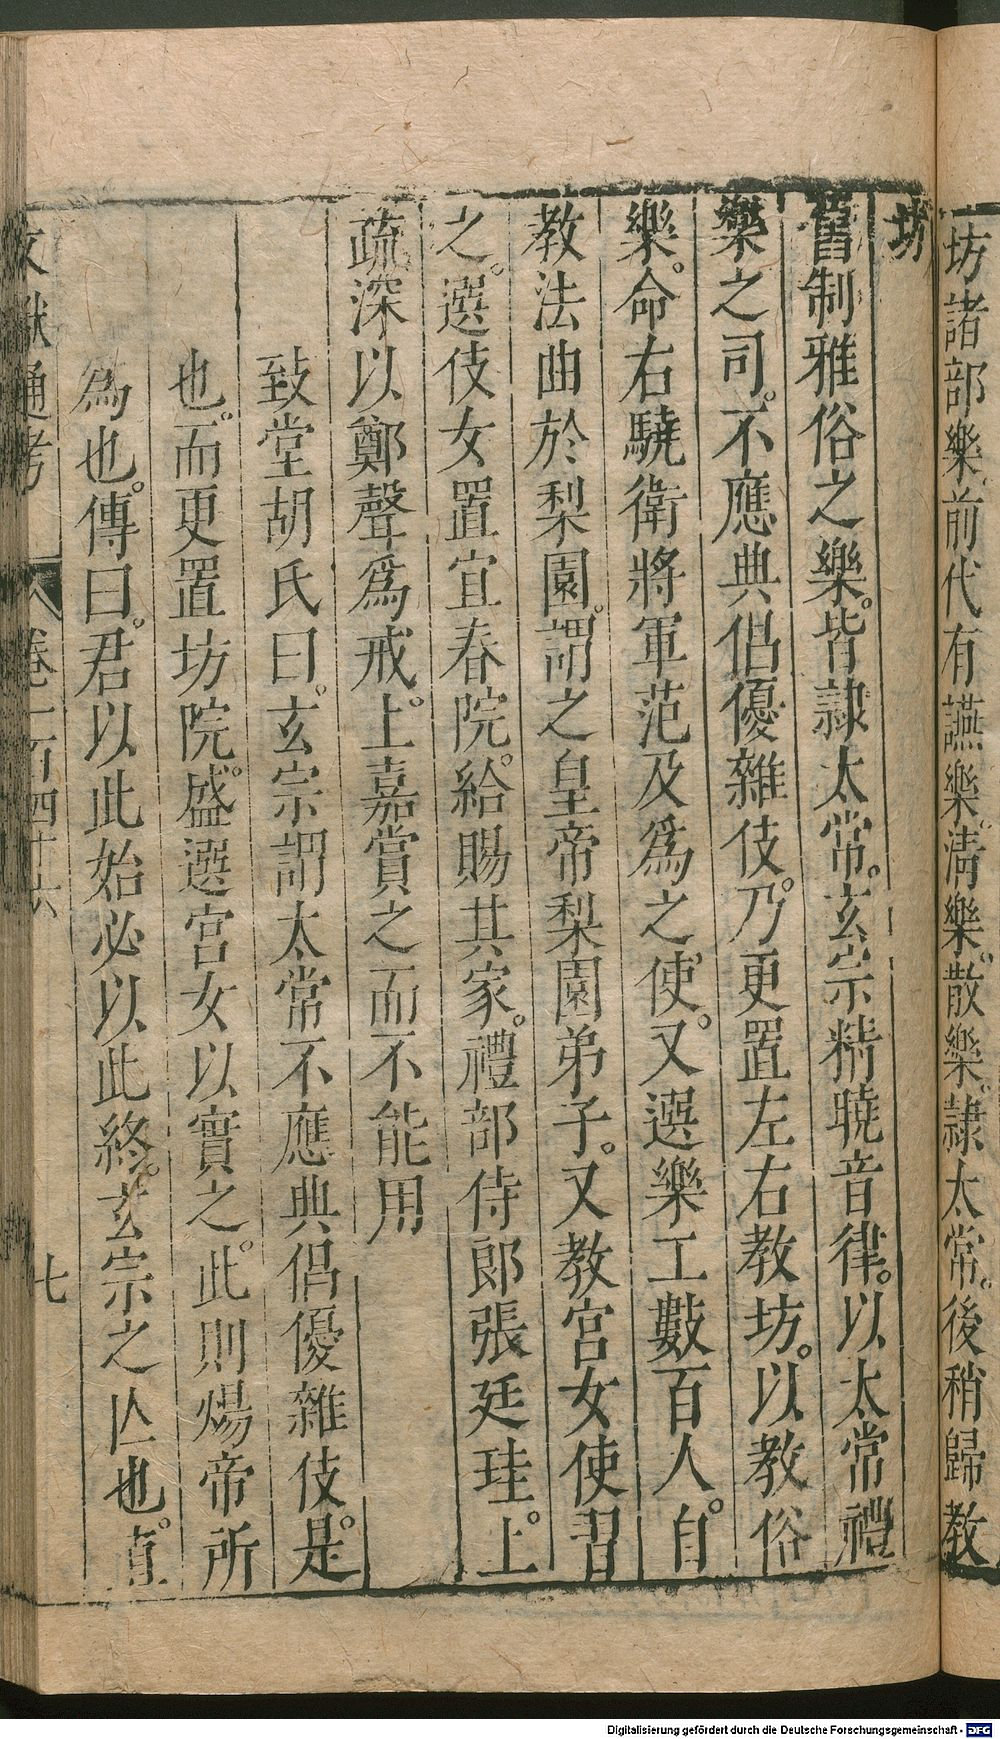 坊諸部樂前代有讌樂清樂散樂隷太常後稍歸教
坊
舊制雅俗之樂皆隷太常玄宗精曉音律以太常禮
樂之司不應典倡優雜伎乃更置左右教坊以教俗
樂命右驍衛將軍范及爲之使又選樂工數百人自
教法曲於梨園謂之皇帝梨園弟子又教宮女使習
之選伎女置宜春院給賜其家禮部侍郎張廷珪上
疏深以鄭聲爲戒上嘉賞之而不能用
致堂胡氏曰玄宗謂太常不應典倡優雜伎是
也而更置坊院盛選宮女以實之此則煬帝所
為也傳曰君以此始必以此終玄宗之亾也直
文獻通考 卷一百四十六 七
Digitalisierung gefördert durch die Deutsche Forschungsgemeinschaft - DFG